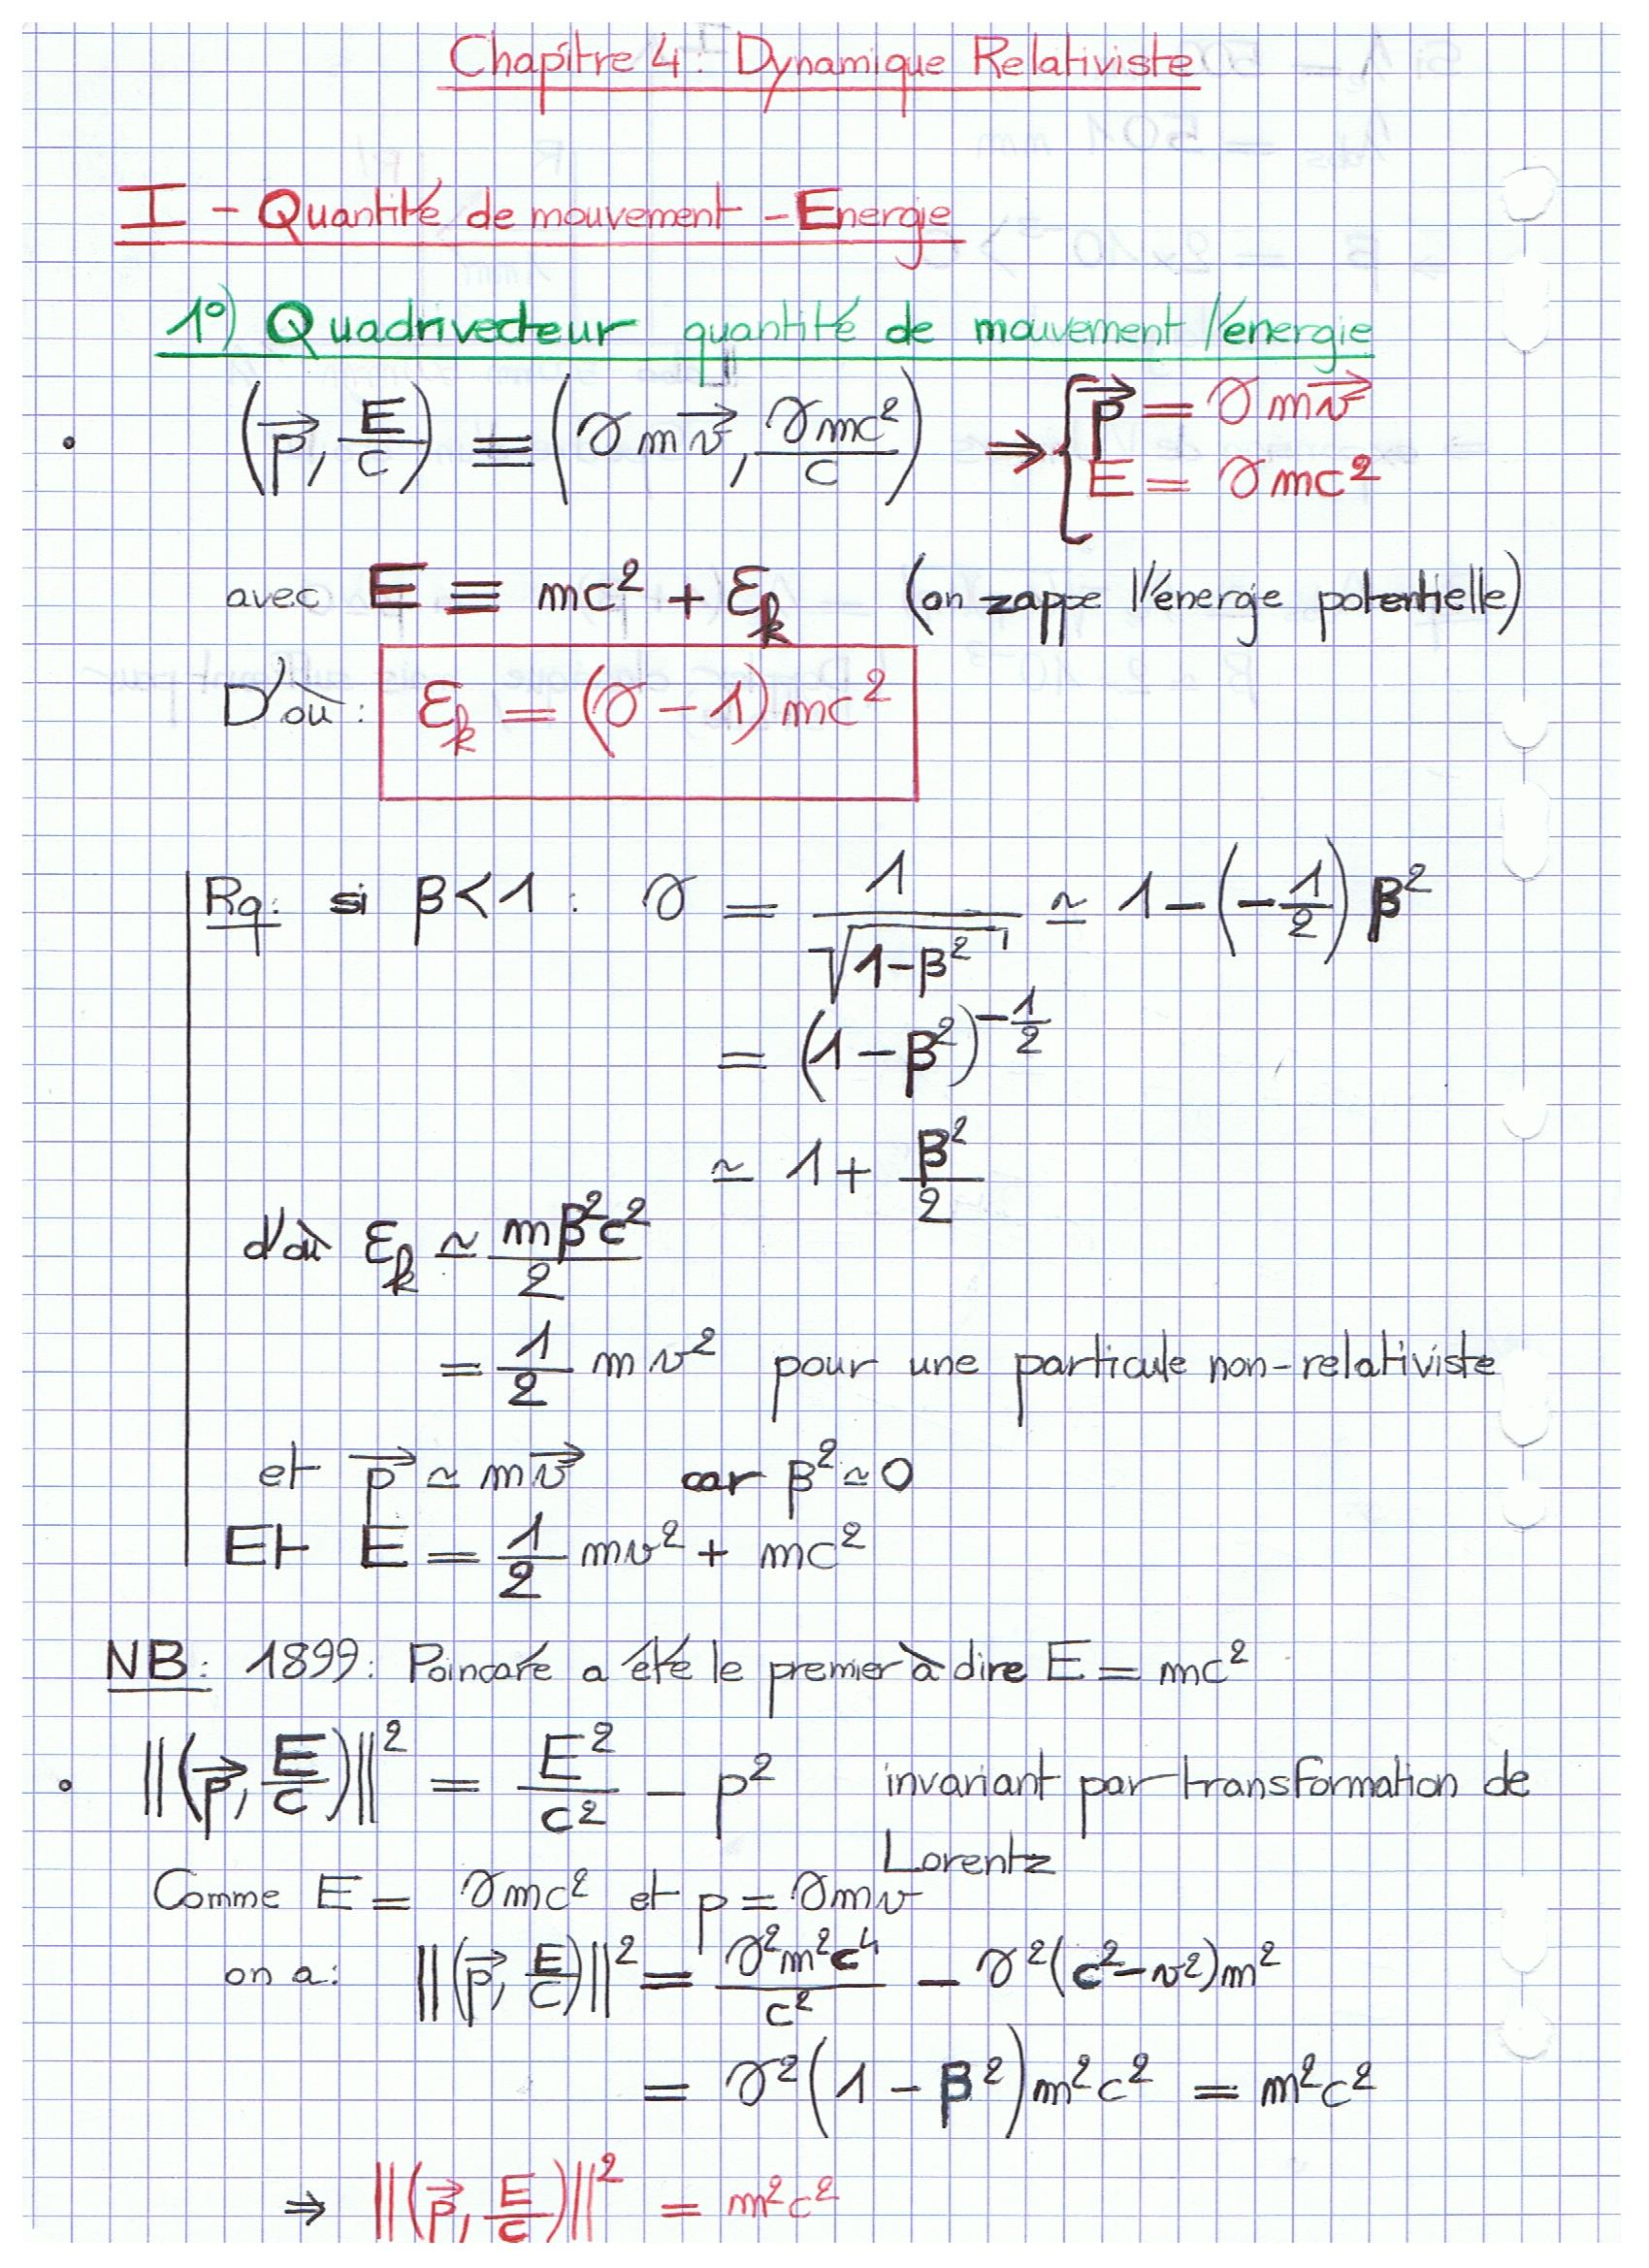 Chapitre 4 : Dynamique Relativiste
I - Quantité de mouvement - Energie
1°) Quadrivecteur quantité de mouvement l'énergie
• (p⃗, E/c) ≡ (γmv⃗, γmc²/c) ⇒ { p⃗ = γmv⃗
E = γmc²
avec E ≡ mc² + εk (on zappe l'énergie potentielle)
D'où : εk = (γ - 1)mc²
Rq: si β < 1 : γ = 1/√(1-β²) ≃ 1 - (-1/2) β²
= (1 - β²)^(-1/2)
≃ 1 + β²/2
d'où εk ≃ mβ²c²/2
= 1/2 mv² pour une particule non-relativiste
et p⃗ ≃ mv⃗ car β² ≃ 0
Et E = 1/2 mv² + mc²
NB : 1899 : Poincaré a été le premier à dire E = mc²
• ||(p⃗, E/c)||² = E²/c² - p² invariant par transformation de
Lorentz
Comme E = γmc² et p = γmv
on a : ||(p⃗, E/c)||² = γ²m²c⁴/c² - γ²(c²-v²)m²
= γ²(1 - β²)m²c² = m²c²
⇒ ||(p⃗, E/c)||² = m²c²